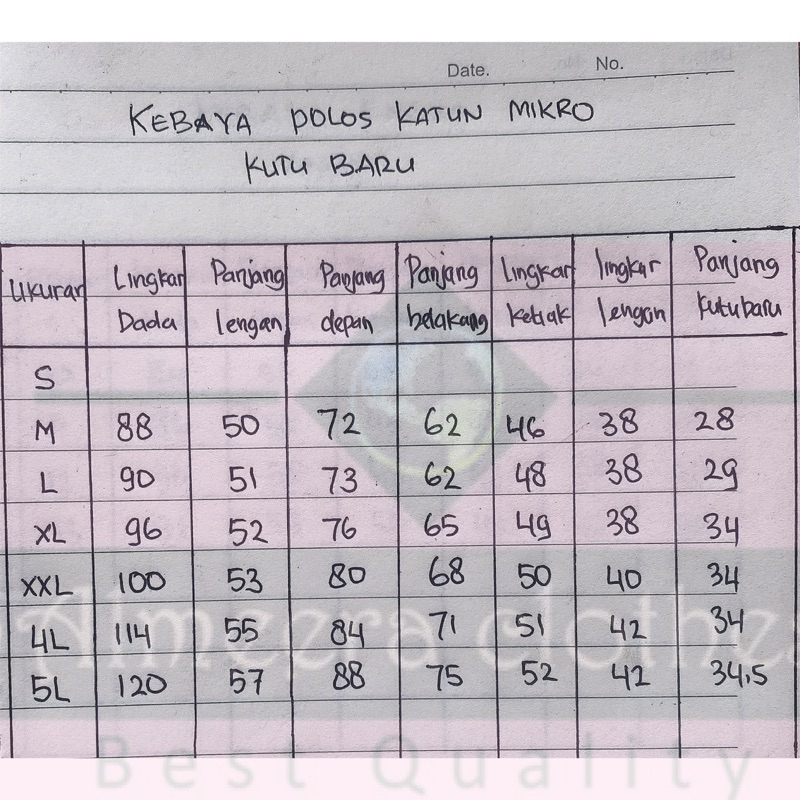 Date. No.
KEBAYA POLOS KATUN MIKRO
KUTU BARU
Ukuran Lingkar Dada Panjang lengan Panjang depan Panjang belakang Lingkar Ketiak lingkar lengan Panjang kutubaru
S
M 88 50 72 62 46 38 28
L 90 51 73 62 48 38 29
XL 96 52 76 65 49 38 34
XXL 100 53 80 68 50 40 34
4L 114 55 84 71 51 42 34
5L 120 57 88 75 52 42 34,5
Almeera clothz
Best Quality